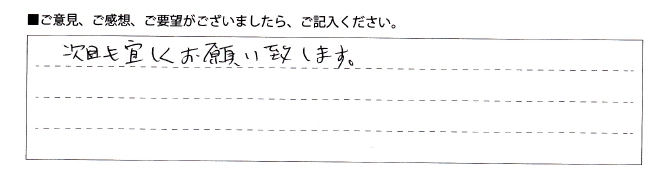 ■ご意見、ご感想、ご要望がございましたら、ご記入ください。
次回も宜しくお願い致します。